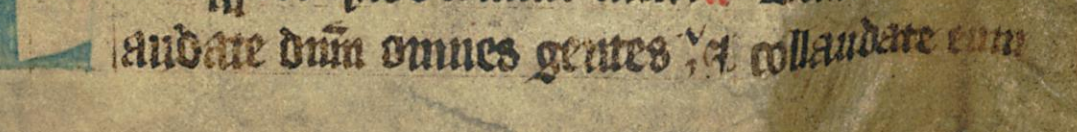 Laudate dn̄m omnes gentes ; et collaudate eum